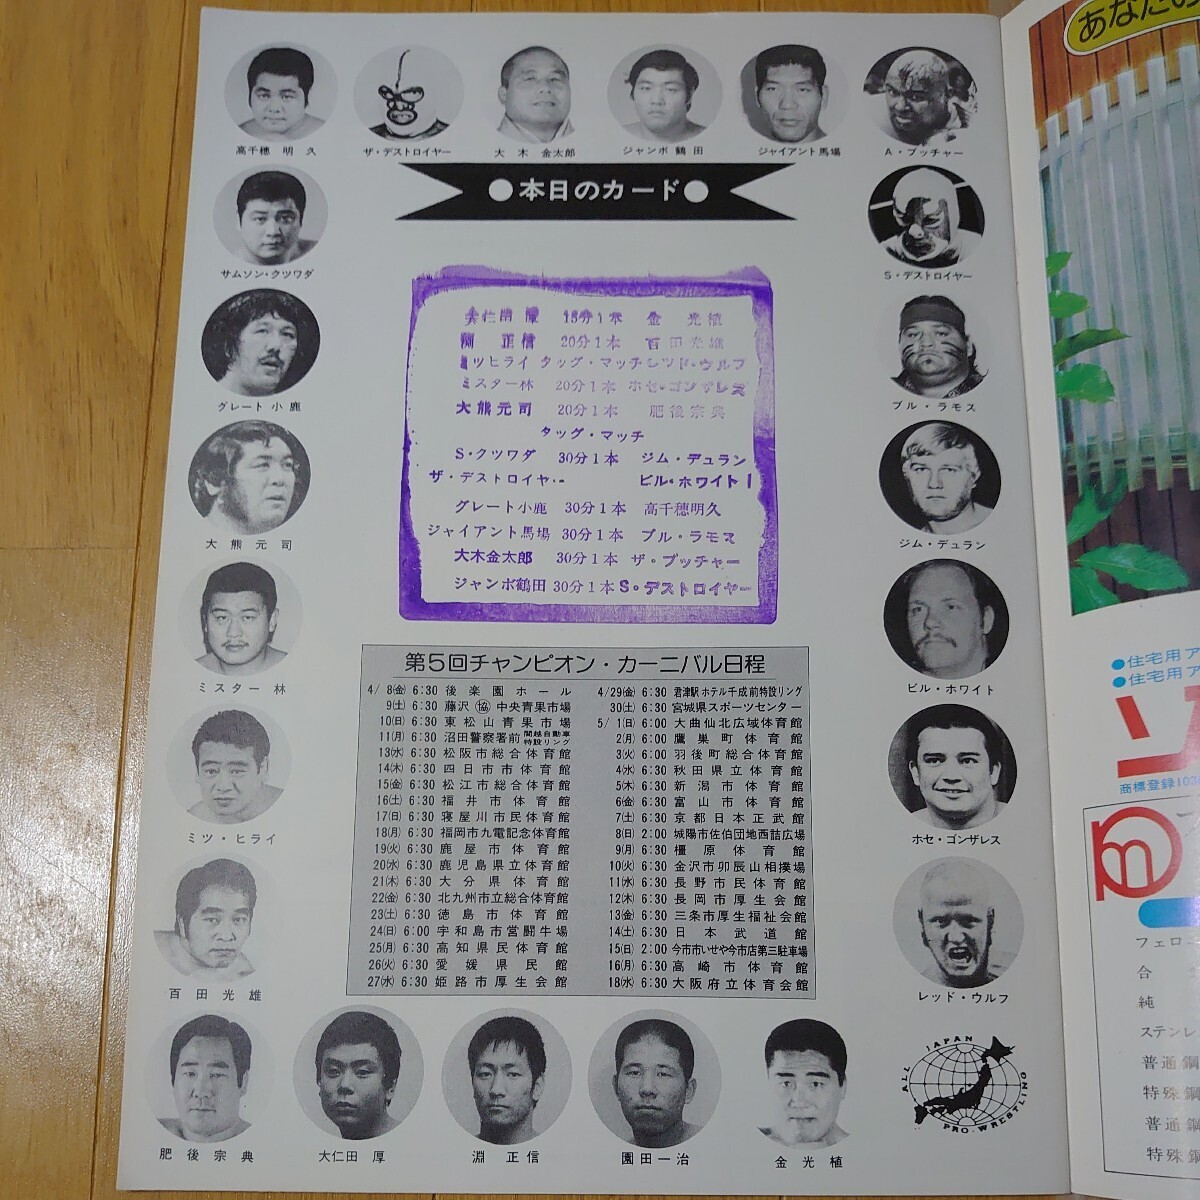 高千穂明久
ザ・デストロイヤー
大木金太郎
ジャンボ鶴田
ジャイアント馬場
A・ブッチャー
●本日のカード●
サムソン・クツワダ
S・デストロイヤー
グレート小鹿
ブル・ラモス
大熊元司
ジム・デュラン
ミスター林
ビル・ホワイト
ミツ・ヒライ
ホセ・ゴンザレス
百田光雄
レッド・ウルフ
大仁田厚 15分1本 金光植
渕正信 20分1本 百田光雄
ミツヒライ タッグ・マッチ レッド・ウルフ
ミスター林 20分1本 ホセ・ゴンザレス
大熊元司 20分1本 肥後宗典
タッグ・マッチ
S・クツワダ 30分1本 ジム・デュラン
ザ・デストロイヤー ビル・ホワイト
グレート小鹿 30分1本 高千穂明久
ジャイアント馬場 30分1本 ブル・ラモス
大木金太郎 30分1本 ザ・ブッチャー
ジャンボ鶴田 30分1本 S・デストロイヤー
第5回チャンピオン・カーニバル日程
4/8(金) 6:30 後楽園ホール
9(土) 6:30 藤沢(協)中央青果市場
10(日) 6:30 東松山青果市場
11(月) 6:30 沼田警察署前関越自動車特設リング
13(水) 6:30 松阪市総合体育館
14(木) 6:30 四日市市体育館
15(金) 6:30 松江市総合体育館
16(土) 6:30 福井市体育館
17(日) 6:30 寝屋川市民体育館
18(月) 6:30 福岡市九電記念体育館
19(火) 6:30 鹿屋市体育館
20(水) 6:30 鹿児島県立体育館
21(木) 6:30 大分県体育館
22(金) 6:30 北九州市立総合体育館
23(土) 6:30 徳島市体育館
24(日) 6:00 宇和島市営闘牛場
25(月) 6:30 高知県民体育館
26(火) 6:30 愛媛県民館
27(水) 6:30 姫路市厚生会館
4/29(金) 6:30 君津駅ホテル千成前特設リング
30(土) 6:30 宮城県スポーツセンター
5/1(日) 6:00 大曲仙北広域体育館
2(月) 6:00 鷹巣町体育館
3(火) 6:00 羽後町総合体育館
4(水) 6:30 秋田県立体育館
5(木) 6:30 新潟市体育館
6(金) 6:30 富山市体育館
7(土) 6:30 京都日本正武館
8(日) 2:00 城陽市佐伯団地西詰広場
9(月) 6:30 橿原体育館
10(火) 6:30 金沢市卯辰山相撲場
11(水) 6:30 長野市民体育館
12(木) 6:30 長岡市厚生会館
13(金) 6:30 三条市厚生福祉会館
14(土) 6:30 日本武道館
15(日) 2:00 今市市いせや今市店第三駐車場
16(月) 6:30 高崎市体育館
18(水) 6:30 大阪府立体育会館
肥後宗典
大仁田厚
渕正信
園田一治
金光植
ALL JAPAN PRO-WRESTLING
あなたの
●住宅用ア
●住宅用ア
商標登録103
フェロ
合
純
ステンレ
普通鋼
特殊鋼
普通鋼
特殊鋼